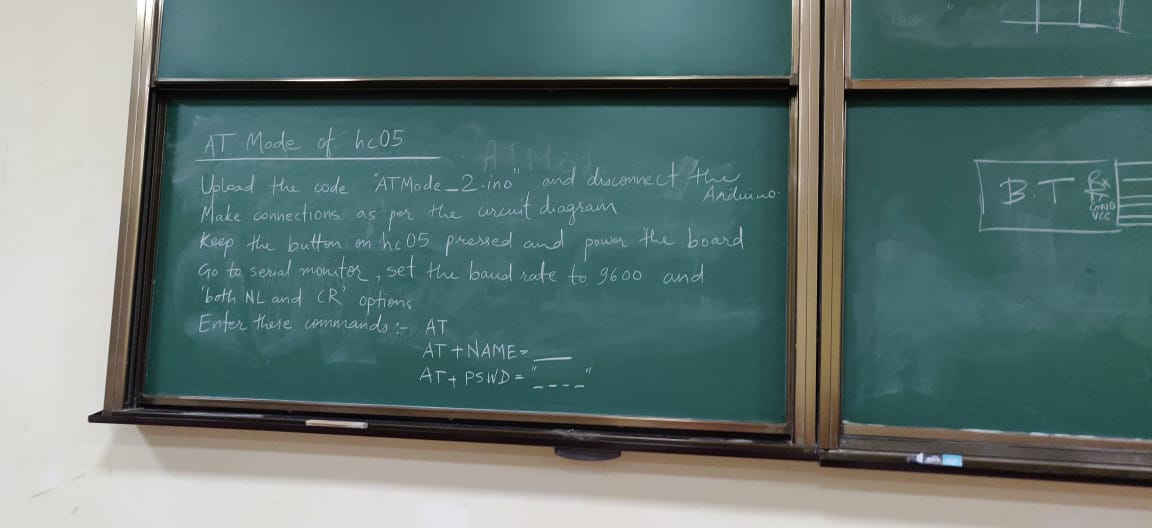 AT Mode of hc05
Upload the code "ATMode_2.ino" and disconnect the
Arduino.
Make connections as per the circuit diagram
Keep the button on hc05 pressed and power the board
Go to serial monitor, set the baud rate to 9600 and
'both NL and CR' options
Enter these commands :- AT
AT+NAME= __
AT+PSWD = "_ _ _ _"
B.T
Rx
Tx
GND
VCC